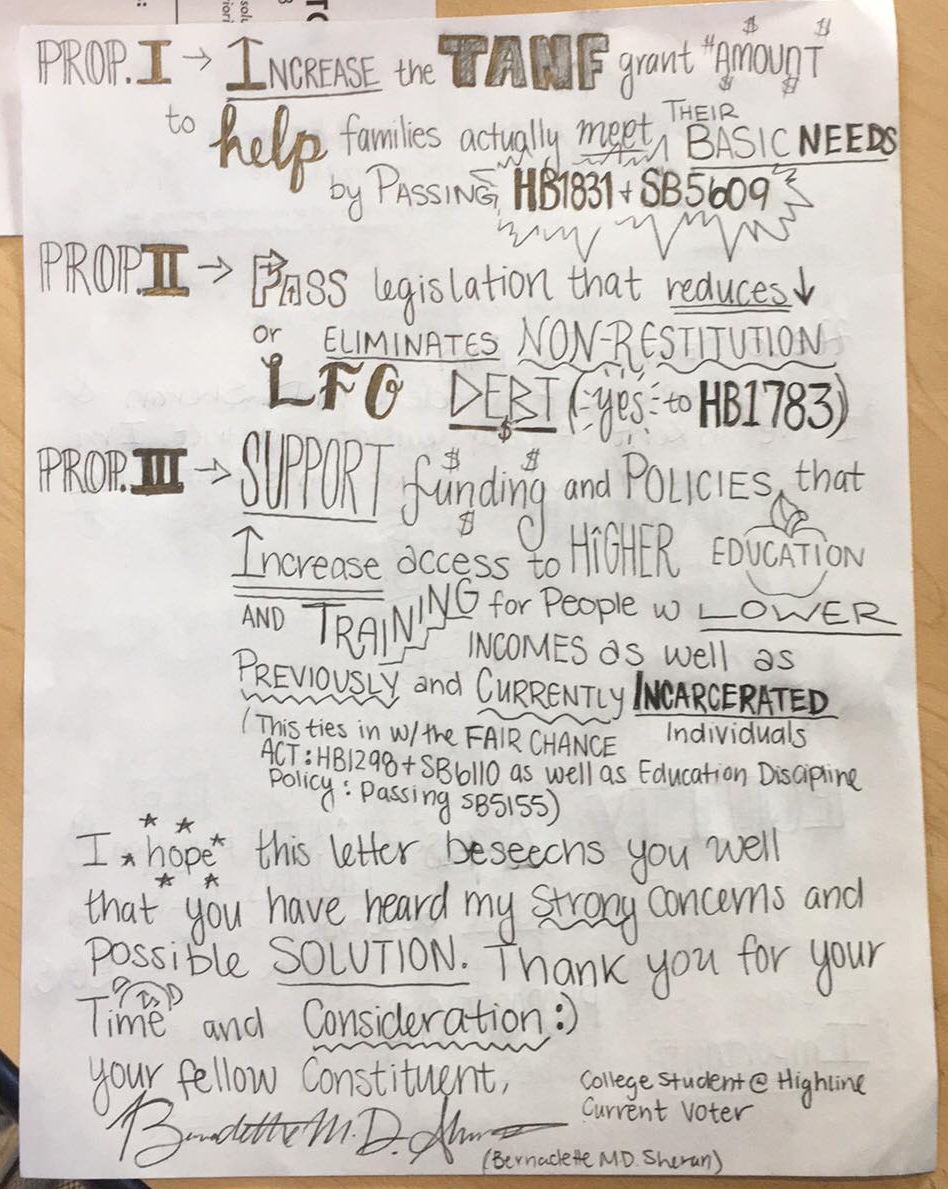 PROP. I → INCREASE the TANF grant "AMOUNT
to help families actually meet THEIR BASIC NEEDS
by PASSING HB1831 + SB5609
PROP. II → PASS legislation that reduces ↓
or ELIMINATES NON-RESTITUTION
LFO DEBT (yes to HB1783)
PROP. III → SUPPORT funding and POLICIES that
Increase access to HIGHER EDUCATION
AND TRAINING for People w LOWER
INCOMES as well as
PREVIOUSLY and CURRENTLY INCARCERATED
Individuals
(This ties in w/ the FAIR CHANCE
ACT: HB1298 + SB6110 as well as Education Discipline
Policy: Passing SB5155)
I hope this letter beseechs you well
that you have heard my Strong concerns and
Possible SOLUTION. Thank you for your
Time and Consideration :)
your fellow Constituent,
College Student @ Highline
Current Voter
Bernadette M.D. Sheran
(Bernadette MD. Sheran)